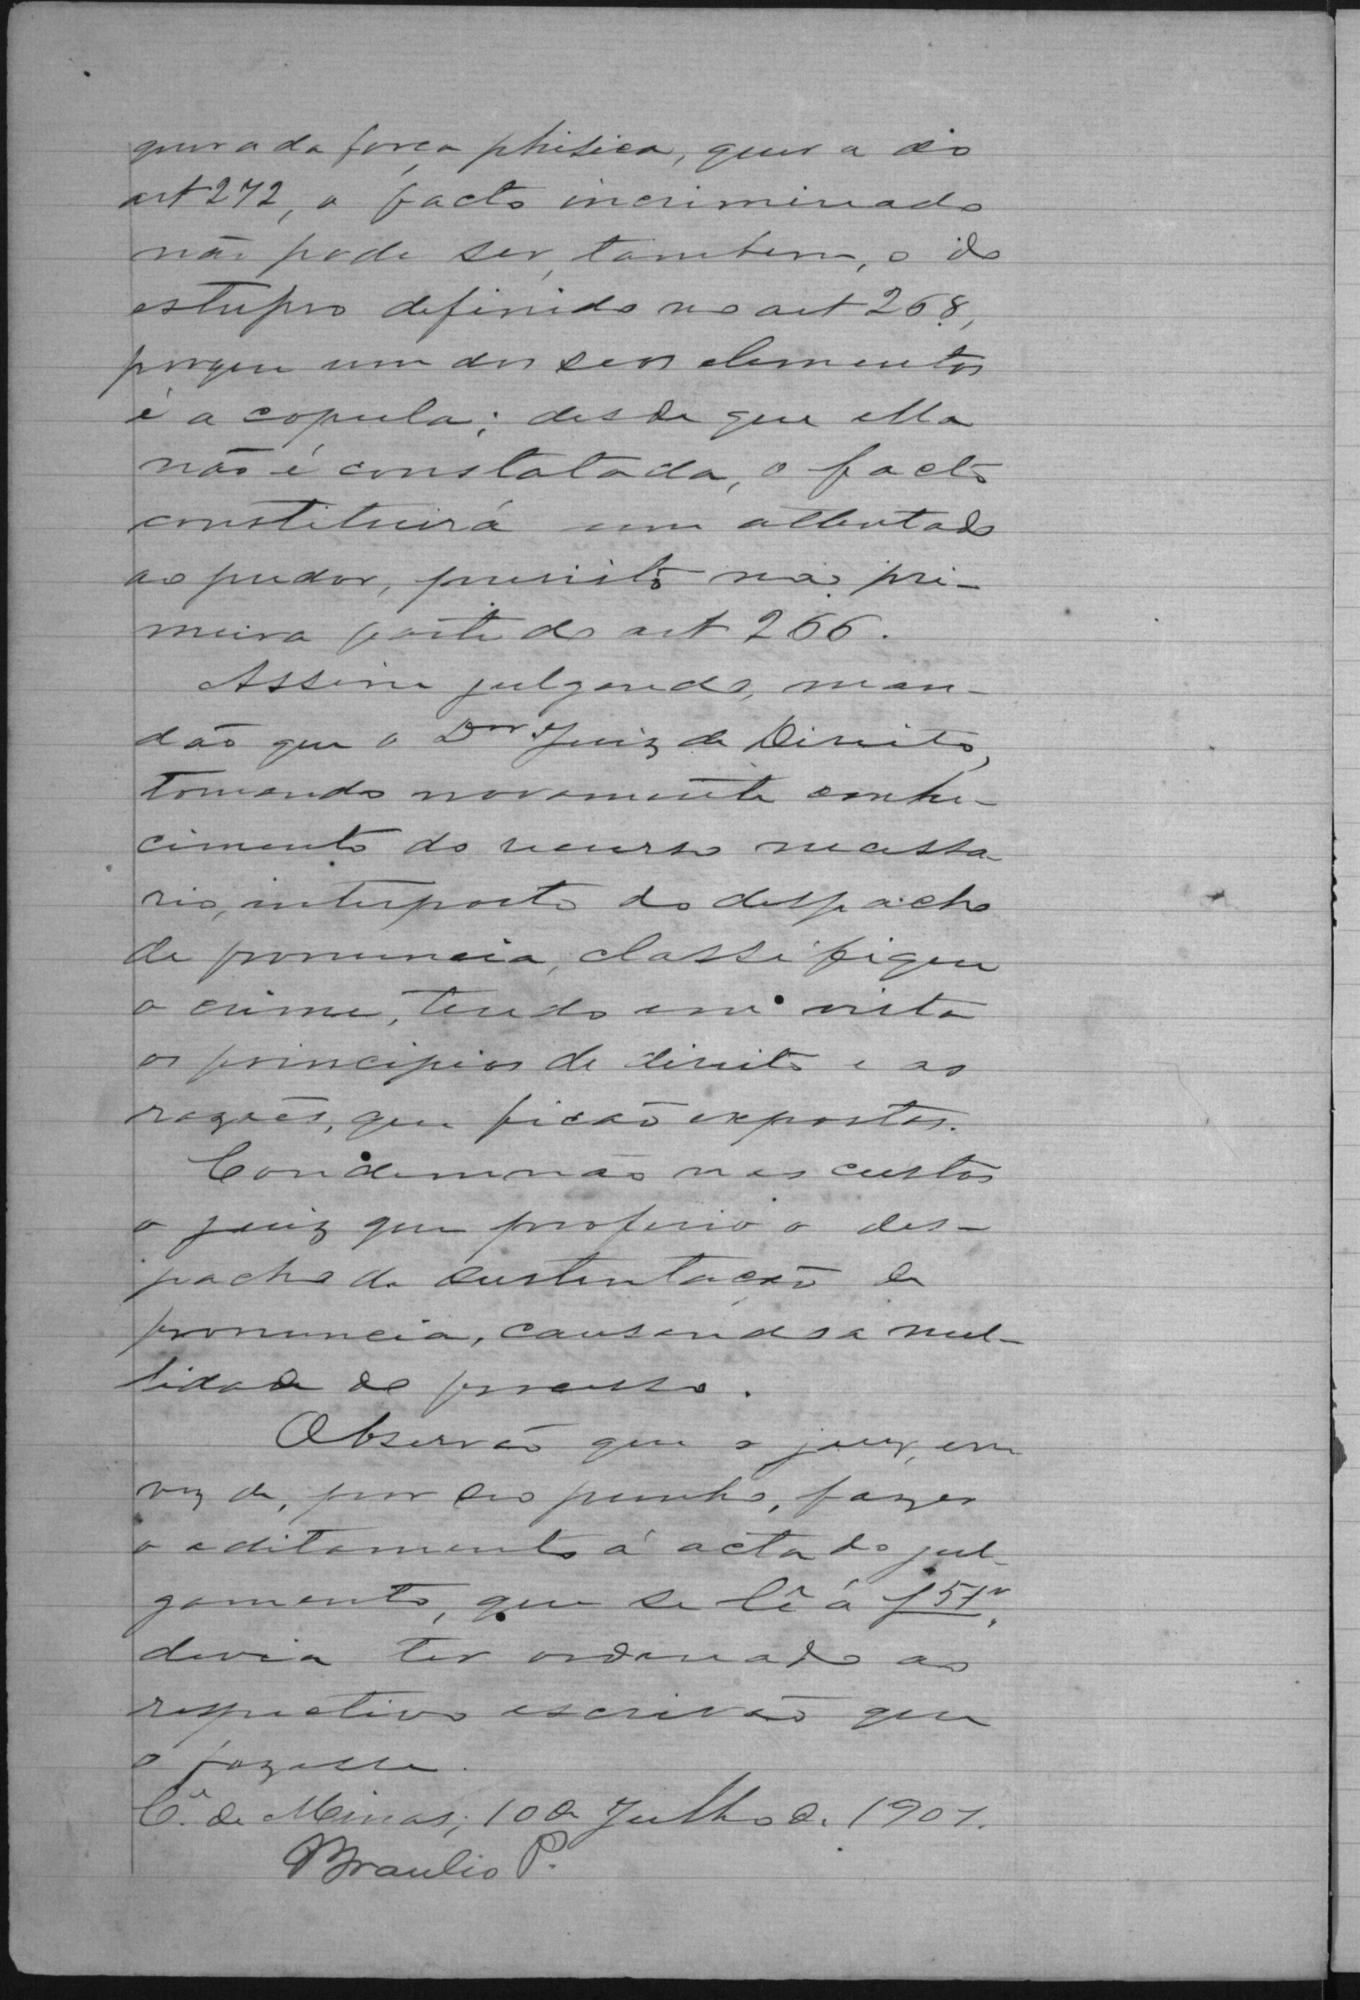 quer a da força phisica, quer a do
art 272, o facto incriminado
não pode ser, tambem, o do
estupro definido no art 268,
porque um dos seos elementos
é a copula; desde que ella
não é constatada, o facto
constituirá um attentado
ao pudor, previsto na pri-
meira parte do art 266.
Assim julgando, man-
dão que o Dor Juiz de Direito,
tomando novamente conhe-
cimento do recurso necessa-
rio, interposto do despacho
de pronuncia, classifique
o crime, tendo em vista
os principios de direito e as
razões, que ficão expostas.
Condemnão nas custas
o juiz que proferio o des-
pacho de sustentação de
pronuncia, causando a nul-
lidade do processo.
Observão que o juiz, em
vez de, por seo punho, fazer
o aditamento á acta do jul-
gamento, que se lê á f 51v,
devia ter ordenado ao
respectivo escrivão que
o fizesse.
Ce. de Minas, 10 de Julho de 1901.
Braulio P.